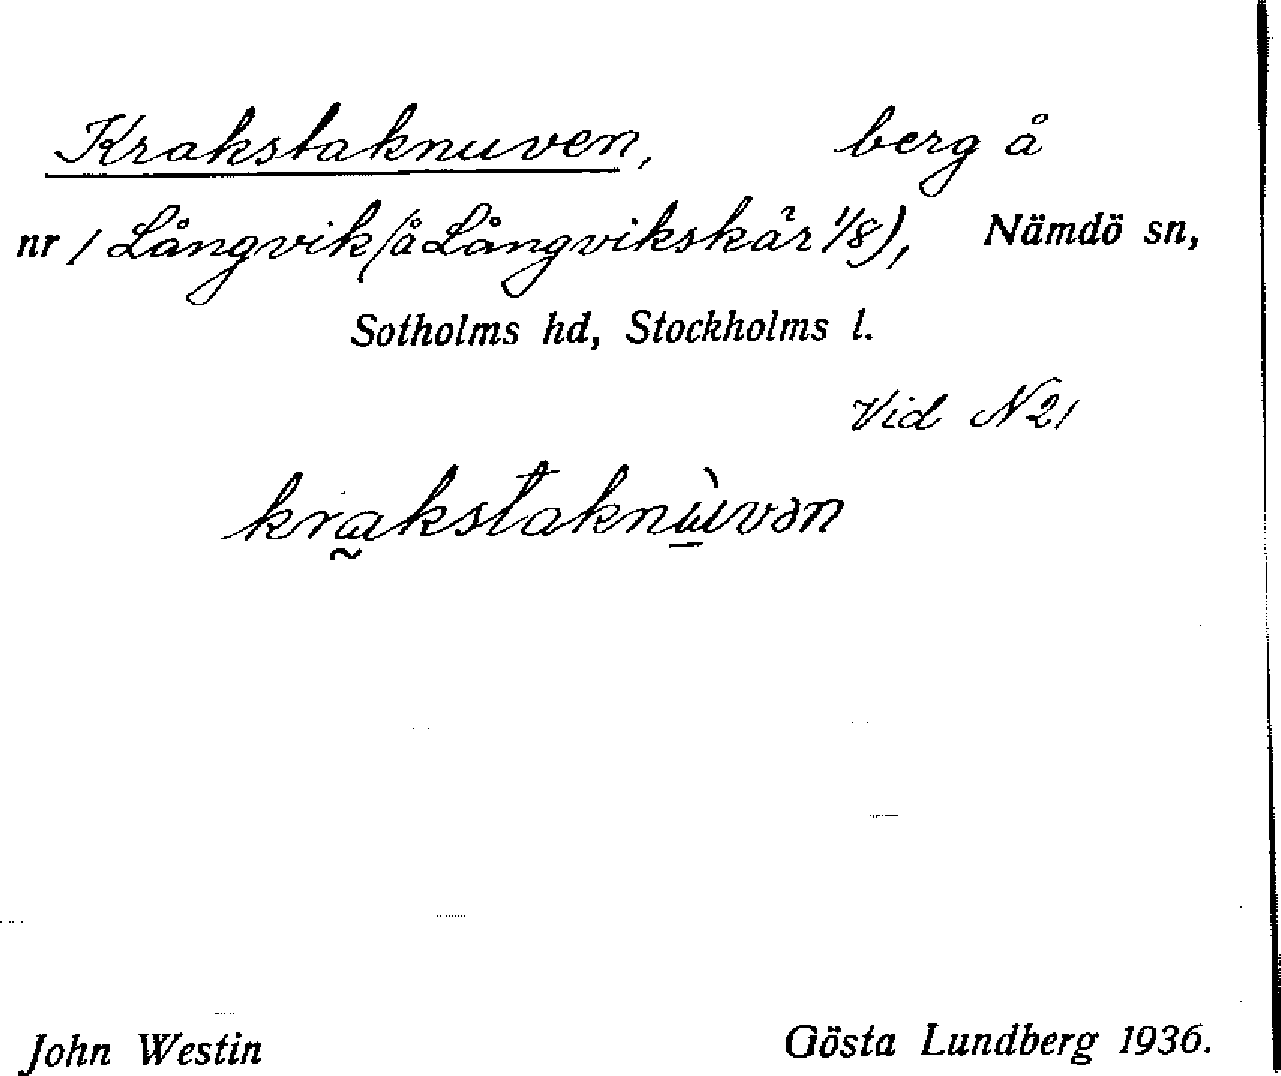 Krakstaknuven, berg å
nr 1 Långvik (å Långvikskär 1/8), Nämdö sn,
Sotholms hd, Stockholms l.
Vid N 21
kra̰kstaknù̱vən
John Westin Gösta Lundberg 1936.